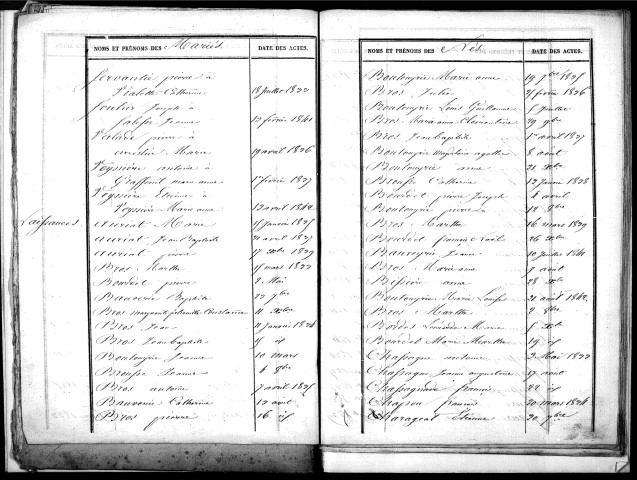 NOMS ET PRÉNOMS DES Mariés DATE DES ACTES.
Servantie pierre à
Valette Catherine 18 Juillet 1822
Soulier Joseph à
Jeanne 12 février
Valade pierre à
Marie 19 avril 1826
Veyssière antoine à
marianne 1er février 1827
Veyssière Etienne à
Veyssière Marianne 12 avril 1842
Naissances auriat Marie 15 Janvier 1825
auriat Jean Baptiste 20 avril 1827
auriat pierre 17 Xbre 1829
Bros Marthe 15 mars 1822
Boudet pierre 2 Mai
Bauverie Baptiste 22 9bre
Bros marguerite Constance 11 Xbre
Bros Jean 11 Janvier 1824
Bros Jean baptiste 15 id
Boulouyrie Jeanne 10 mars
Brousse Jeanne 6 8bre
Bros antoine 7 avril 1825
Bauverie Catherine 12 avril
Bros pierre 16 id
NOMS ET PRÉNOMS DES Nés DATE DES ACTES.
Boulouyrie Marie anne 19 7bre 1825
Bros Julie 25 février 1826
Boulouyrie Louis Guillaume 5 Juillet
Bros Marianne Clémentine 29 9bre
Bros Jean Baptiste 1er avril 1827
Boulouyrie Magdeleine agathe 8 avril
Boulouyrie anne 21 Xbre
Brousse Catherine 12 Janvier 1828
Boudet pierre Joseph 4 avril
Boulouyrie pierre 12 8bre
Bros Marthe 16 mars 1829
Boudet françois Noël 26 Xbre
Jeanne 10 Juillet 1841
Bros Marianne 7 avril
Bessière anne 28 Xbre
Boulouyrie Marie Louise 21 avril 1842
Bros Marthe 2 8bre
Bordes Léonarde Marie 5 Xbre
Bourdet Marie Marthe 19 id
Chassagne antoine 2 Mai 1822
Chassagne Jeanne 17 avril
Chassagnade francois 22 id
Chapou francois 20 mars 1824
Charageat Etienne 20 9bre